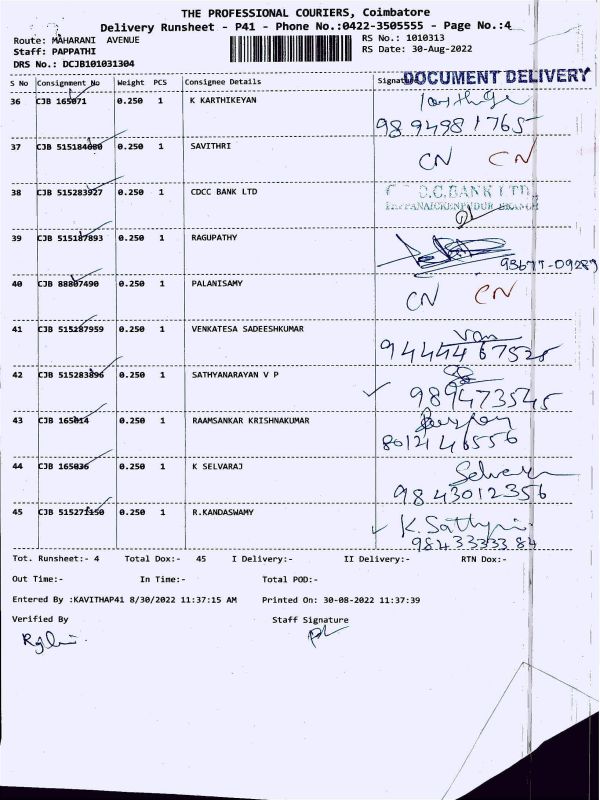 THE PROFESSIONAL COURIERS, Coimbatore
Delivery Runsheet - P41 - Phone No.:0422-3505555 - Page No.:4
Route: MAHARANI AVENUE
RS No.: 1010313
Staff: PAPPATHI
RS Date: 30-Aug-2022
DRS No.: DCJB101031304
S No Consignment No Weight PCS Consignee Details Signature
DOCUMENT DELIVERY
36 CJB 165071 0.250 1 K KARTHIKEYAN
9894981765
37 CJB 515184080 0.250 1 SAVITHRI CN CN
38 CJB 515283927 0.250 1 CDCC BANK LTD
C.C.BANK LTD
BRANCH
39 CJB 515187893 0.250 1 RAGUPATHY
93677-09289
40 CJB 88807490 0.250 1 PALANISAMY CN CN
41 CJB 515187959 0.250 1 VENKATESA SADEESHKUMAR
9444467525
42 CJB 515283896 0.250 1 SATHYANARAYAN V P
989473545
43 CJB 165014 0.250 1 RAAMSANKAR KRISHNAKUMAR
8012146556
44 CJB 165036 0.250 1 K SELVARAJ
9843012356
45 CJB 515271150 0.250 1 R.KANDASWAMY
9843333384
Tot. Runsheet:- 4 Total Dox:- 45 I Delivery:- II Delivery:- RTN Dox:-
Out Time:- In Time:- Total POD:-
Entered By :KAVITHAP41 8/30/2022 11:37:15 AM Printed On: 30-08-2022 11:37:39
Verified By Staff Signature